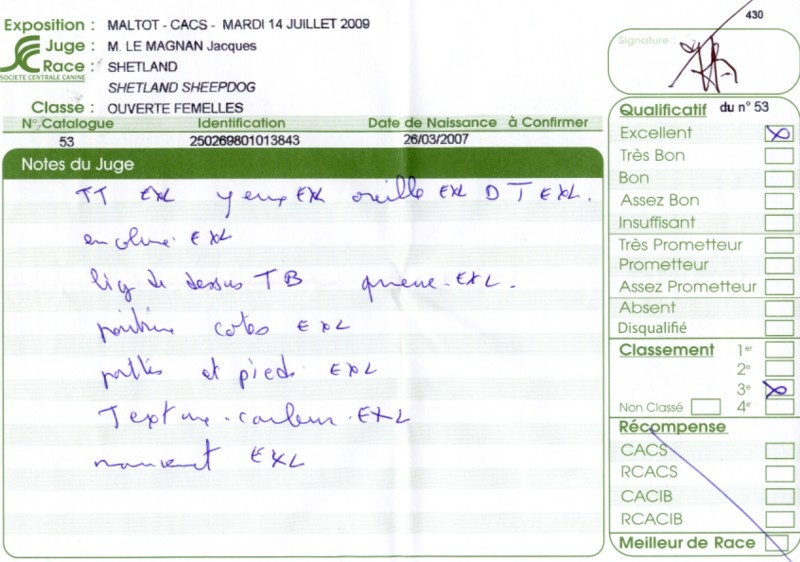 430
Exposition : MALTOT - CACS - MARDI 14 JUILLET 2009
Juge : M. LE MAGNAN Jacques
Race : SHETLAND
SOCIETE CENTRALE CANINE
SHETLAND SHEEPDOG
Classe : OUVERTE FEMELLES
N° Catalogue Identification Date de Naissance à Confirmer
53 250269801013843 26/03/2007
Notes du Juge
TT EXL yeux EXL oreille EXL DT EXL.
encolure EXL
lig de dessus TB queue EXL.
poitrine cotes EXL
pattes et pieds EXL
Texture couleur EXL
mouvement EXL
Signature :
Qualificatif du n° 53
Excellent
Très Bon
Bon
Assez Bon
Insuffisant
Très Prometteur
Prometteur
Assez Prometteur
Absent
Disqualifié
Classement 1er
2e
3e
Non Classé 4e
Récompense
CACS
RCACS
CACIB
RCACIB
Meilleur de Race